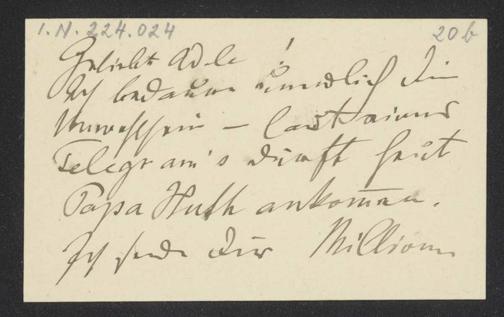 I.N. 224.024
20b
Geliebte Adele!
Ich bedaure unendlich Dein
Unwohlsein – laut eines
Telegram's dürft heut
Papa Huth ankommen.
Ich sende Dir Millionen